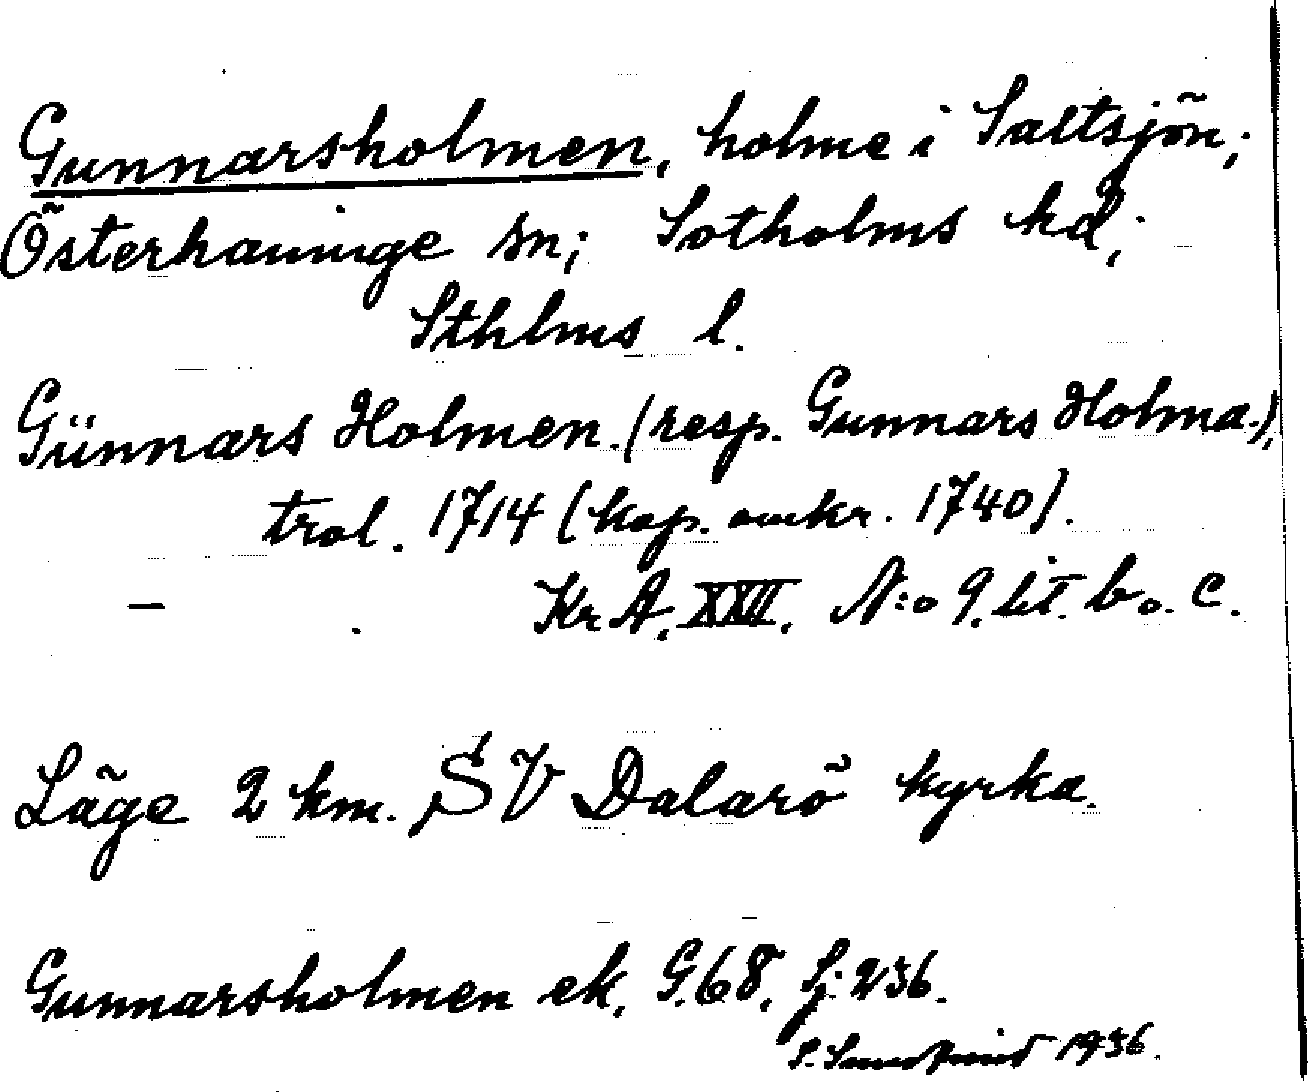 Gunnarsholmen, holme i Saltsjön;
Österhaninge sn; Sotholms hd;
Sthlms l.
Günnars Holmen. (resp. Gunnars Holma.),
trol. 1714 (kop. omkr. 1740).
— Kr A. XXII. N:o 9. lit. b o. c.
Läge 2 km. SV Dalarö kyrka.
Gunnarsholmen ek. G.68,
S. 1936.